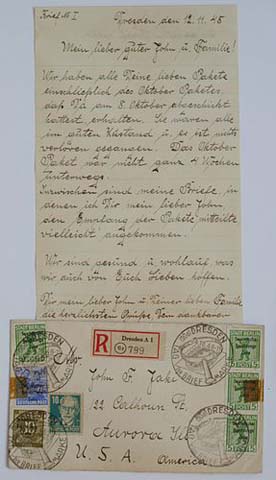 Brief № I
Dresden den 12.11.48
Mein lieber guter John u. Familie!
Wir haben alle Deine lieben Pakete
einschließlich des Oktober Paketes
daß Du am 8. Oktober abschickt
hattest erhalten. Sie waren alle
im guten Zustand u. es ist nichts
verloren gegangen. Das Oktober
Paket war nicht ganz 4 Wochen
unterwegs.
Inzwischen sind meine Briefe, in
denen ich Dir mein lieber John
den Empfang der Pakete mitteilte
vielleicht angekommen.
Wir sind gesund u. wohlauf was
wir auch von Euch Lieben hoffen.
Dir mein lieber John u. Deiner lieben Familie
die herzlichsten Grüße, Dein dankbarer
R
Dresden A 1
799
DRESDEN
TAG DER BRIEFMARKE
STADT BERLIN
5
10
John F. Jake
22 Calhoun St
Aurora Ill
U. S. A.
America